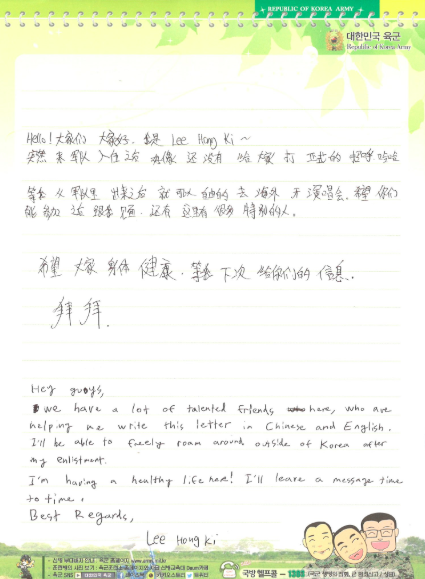 REPUBLIC OF KOREA ARMY
대한민국 육군
Republic of Korea Army
Hello! 大家们 大家好. 我是 Lee Hong Ki ~
突然 来 军队 入伍 之后 好像 还没有 给 大家 打 正式的 招呼
等我 从 军队里 出来之后 就可以 自由的 去 海外 开 演唱会. 希望 你们
能 还有 这里有 很多 特别的人.
希望 大家 身体 健康. 等我 下次 给你们的 信息.
拜拜.
Hey guys,
we have a lot of talented friends here, who are
helping me write this letter in Chinese and English.
I'll be able to freely roam around outside of Korea after
my enlistment.
I'm having a healthy life here! I'll leave a message time
to time.
Best Regards,
Lee Hong Ki
국방헬프콜 - 1303